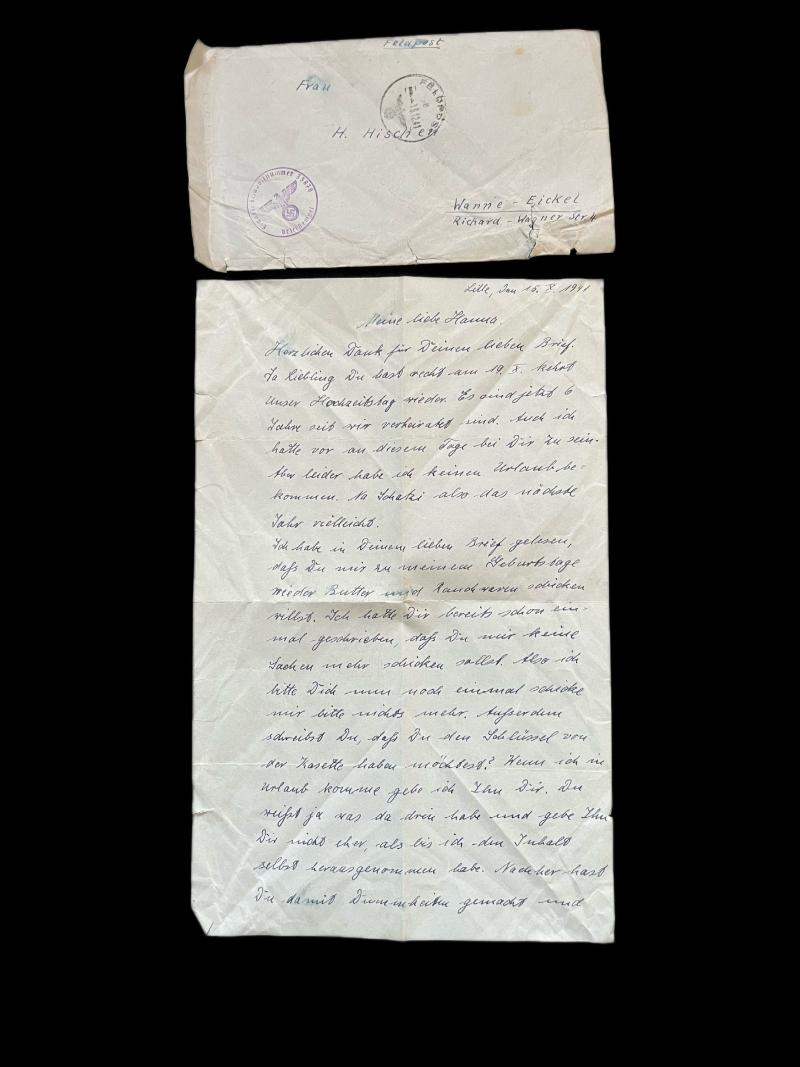 Feldpost
Frau
FELDPOST
H. Hischen
Wanne - Eickel
Richard - Wagner Str 4
Lille, den 15. X. 1941
Meine liebe Hanna.
Herzlichen Dank für Deinen lieben Brief.
Ja Liebling Du hast recht am 19. X. kehrt
unser Hochzeitstag wieder. Es sind jetzt 6
Jahre seit wir verheiratet sind. Auch ich
hatte vor an diesem Tage bei Dir zu sein.
Aber leider habe ich keinen Urlaub be-
kommen. Na Schatzi also das nächste
Jahr vielleicht.
Ich habe in Deinem lieben Brief gelesen,
daß Du mir zu meinem Geburtstage
wieder Butter und Rauchwaren schicken
willst. Ich hatte Dir bereits schon ein-
mal geschrieben, daß Du mir keine
Sachen mehr schicken sollst. Also ich
bitte Dich nun noch einmal schicke
mir bitte nichts mehr. Außerdem
schreibst Du, daß Du den Schlüssel von
der Kasette haben möchtest? Wenn ich in
Urlaub komme gebe ich Ihn Dir. Du
weißt ja was da drin habe und gebe Ihn
Dir nicht eher, als bis ich den Inhalt
selbst herausgenommen habe. Nachher hast
Du damit Dummheiten gemacht und